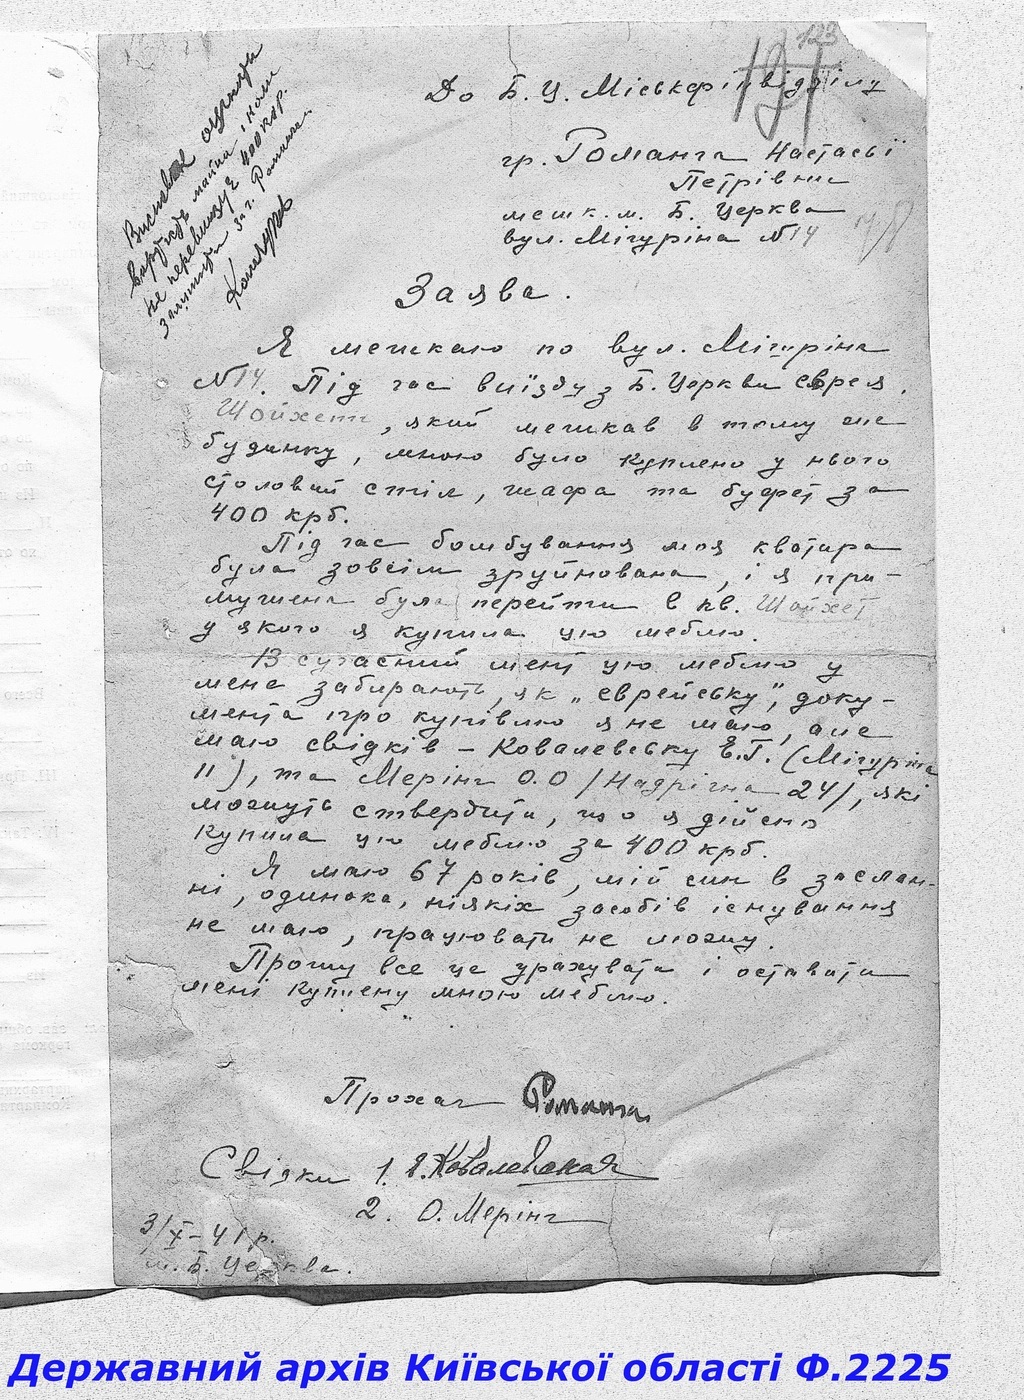 123
До Б. Ц. Міськфінвідділу
гр. Романга Настасьї
Петрівни
мешк. м. Б. Церква
вул. Мічуріна №14
Висновок
майна, коли
не перевищує 400 крб.
залишити за г.
Заява.
Я мешкаю по вул. Мічуріна
№14. Під час виїзду з Б. Церкви еврея
Шойхет, який мешкав в тому же
будинку, мною було куплено у нього
столовий стіл, шафа та буфет за
400 крб.
Під час бомбування моя квотира
була зовсім зруйнована, і я при-
мушена була перейти в кв. Шойхет
у якого я купила цю меблю.
В сучасний мент цю меблю у
мене забирають, як „еврейську", доку-
мента про купівлю я не маю, але
маю свідків – Ковалевську Е.Г. (Мічуріна
11), та Мерінг О.О /Надрічна 24/, які
можуть ствердити, що я дійсно
купила цю меблю за 400 крб.
Я маю 67 років, мій син в заслан-
ні, одинока, ніякіх засобів існування
не маю, працювати не можу.
Прошу все це урахувати і оставити
мені куплену мною меблю.
Прохач Романга
Свідки 1. Е. Ковалевская
2. О. Мерінг
3/X–41 р.
м. Б. Церква.
Державний архів Київської області Ф.2225